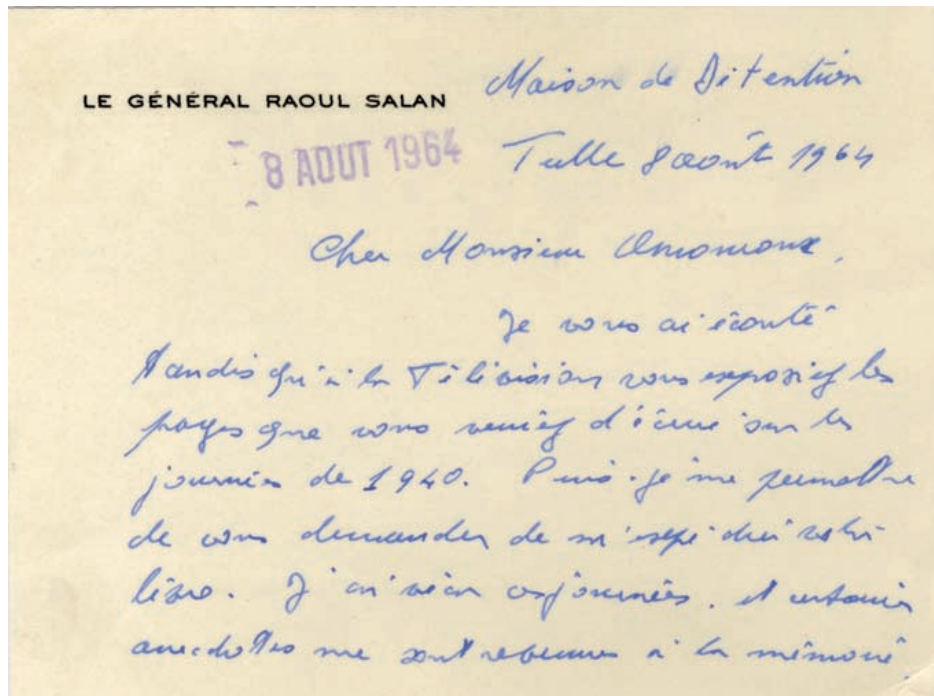 Maison de Détention
LE GÉNÉRAL RAOUL SALAN
8 AOUT 1964
Tulle 8 août 1964
Cher Monsieur Amouroux,
Je vous ai écouté
tandis qu'à la Télévision vous exposiez les
pages que vous veniez d'écrire sur les
journées de 1940. Puis-je me permettre
de vous demander de m'expédier votre
livre. J'ai vécu ces journées, et certaines
anecdotes me sont revenues à la mémoire.